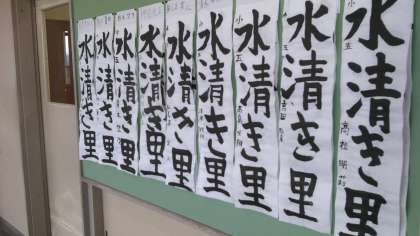 水清き里
水清き里
水清き里
水清き里
水清き里
水清き里
水清き里
水清き里
水清き里
小五
小五
小五